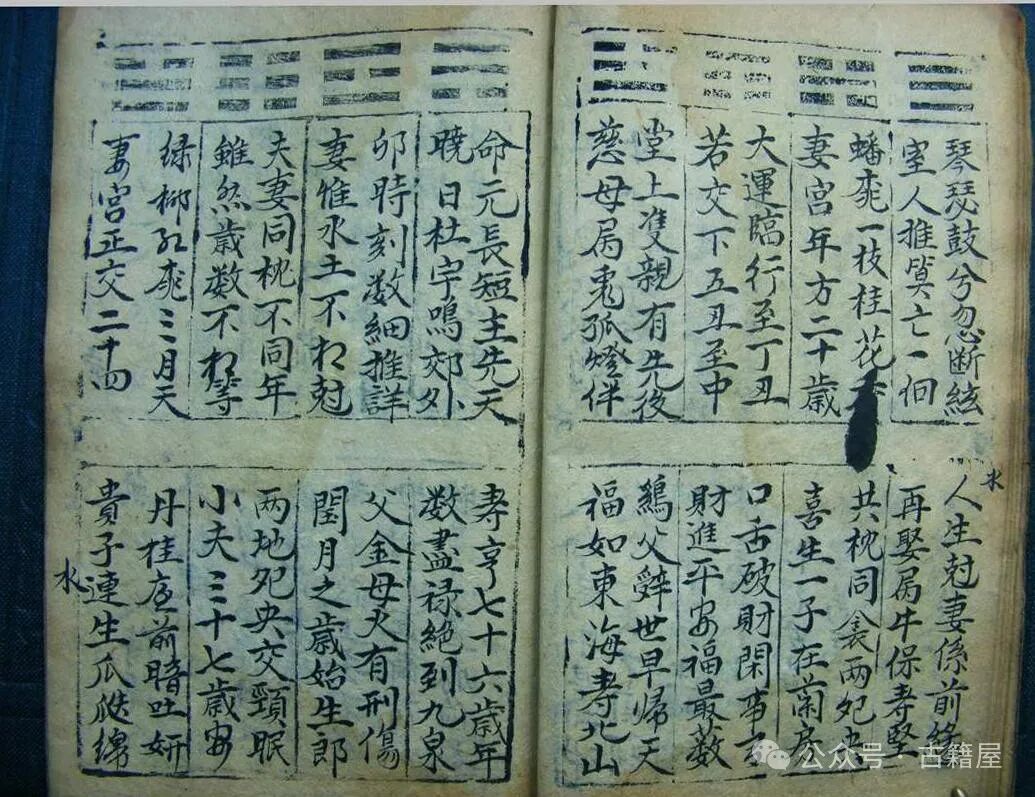 琴瑟鼓兮勿忽断絃
室人推算亡一個
蟠桃一枝桂花
妻宫年方二十歳
大運臨行至丁丑
若交下五丑至中
堂上雙親有先後
慈母属兎孤燈伴
人生尅妻係前緣
再娶属牛保寿堅
共枕同衾两
喜生一子在蘭房
口舌破財閑事
財進平安福最
鷄父辭世早帰天
福如東海寿北山
水
命元長短主先天
暁日杜宇鳴郊外
卯時刻数細推詳
妻惟水土不相尅
夫妻同枕不同年
雖然歳数不相等
绿柳红桃三月天
妻宫正交二十四
寿亨七十六歳年
数盡禄絕到九泉
父金母火有刑傷
閏月之歳始生郎
两地央交頸眠
小夫三十七歳安
丹桂庭前暗吐妍
貴子連生瓜瓞綿
水
公众号·古籍屋